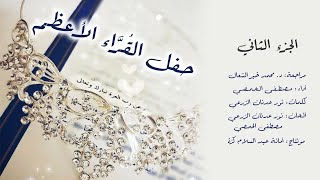 حفل القُرَّاء الأعظم
الجزء الثاني
مراجعة: د. محمد خير الشعال
أداء: مصطفى الحمصي
كلمات: نور عدنان الزرعي
ألحان: نور عدنان الزرعي
مصطفى الحمصي
مونتاج: عبد السلام كزة